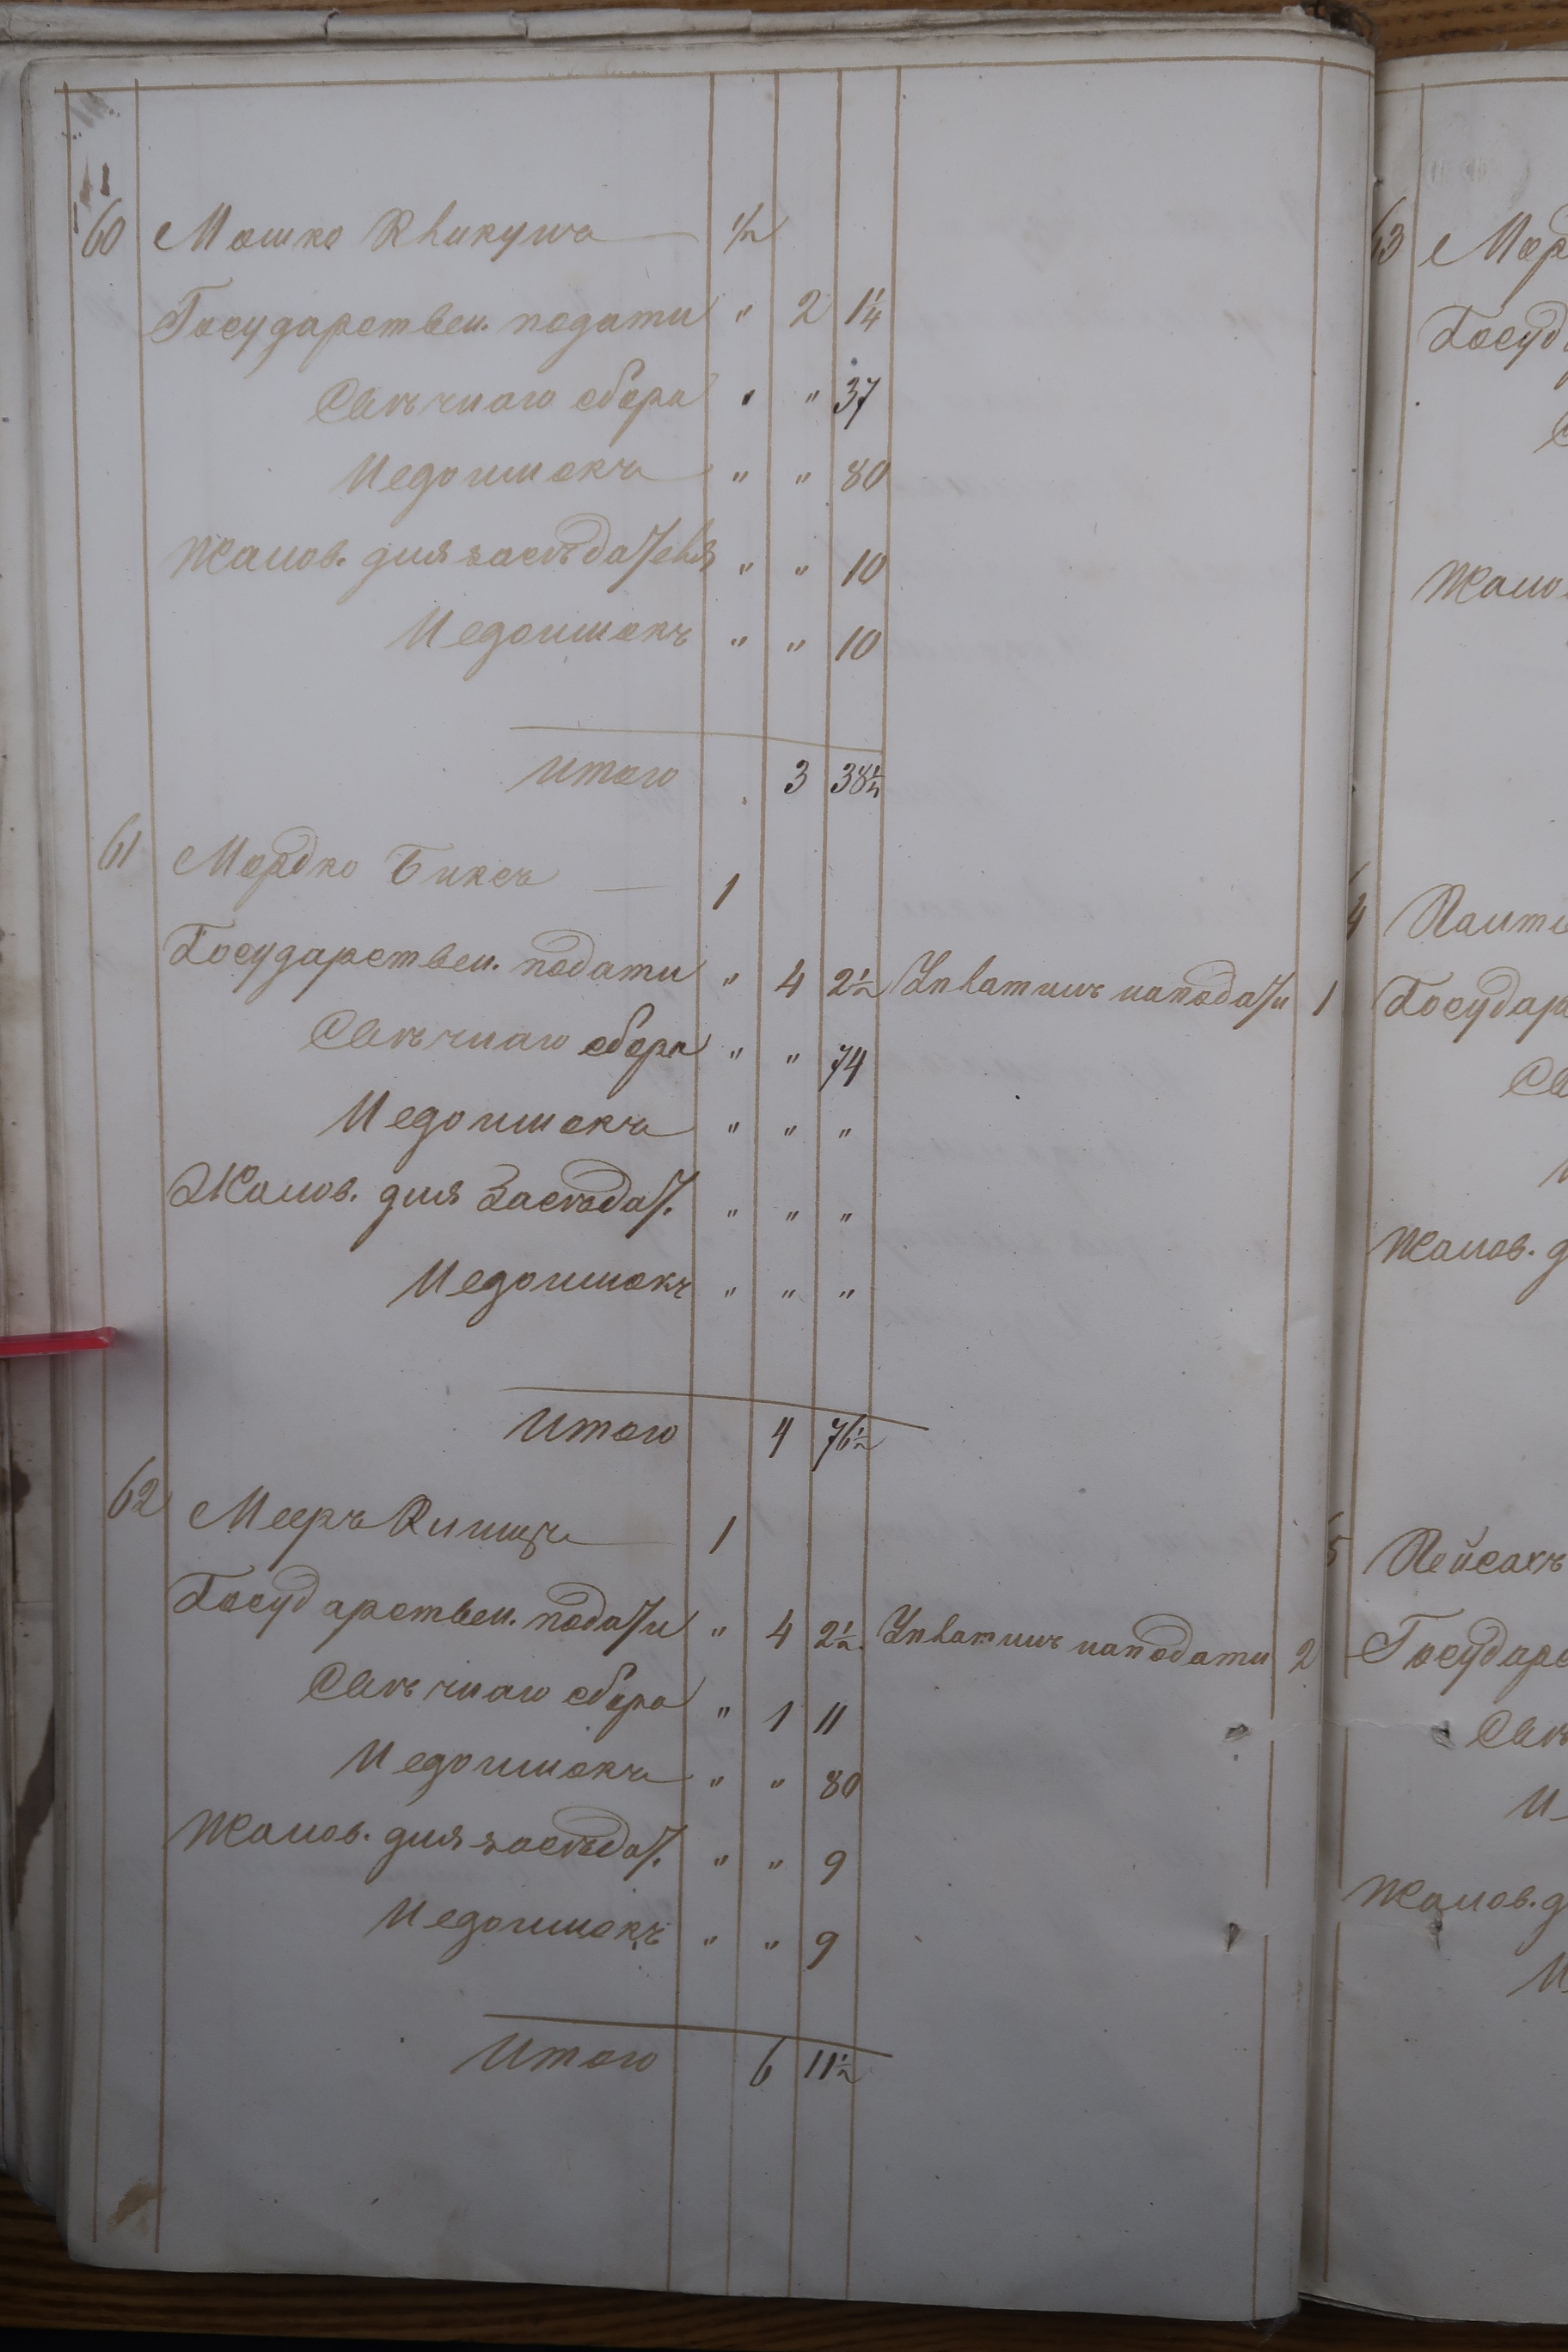 60 Мошко ½
Государствен. подати " 2 1¼
Свѣчнаго сбора " " 37
Недоимокъ " " 80
Жалов. для засѣдателя " " 10
Недоимокъ " " 10
Итого 3 38¼
61 Мордко Биксъ — 1
Государствен. подати " 4 2½ Уплатилъ наподати 1
Свѣчнаго сбора " " 74
Недоимокъ " " "
Жалов. для Засѣдат. " " "
Недоимокъ " " "
Итого 4 76½
62 Мееръ 1
Государствен. подати " 4 2½ Уплатилъ наподати 2
Свѣчнаго сбора " 1 11
Недоимокъ " " 80
Жалов. для засѣдат. " " 9
Недоимокъ " " 9
Итого 6 11½
63 Мор
Госуд
Жало
4
Государ
Св
Жалов. д
5 Пейсахъ
Государс
Свѣ
Н
Жалов. д
Н